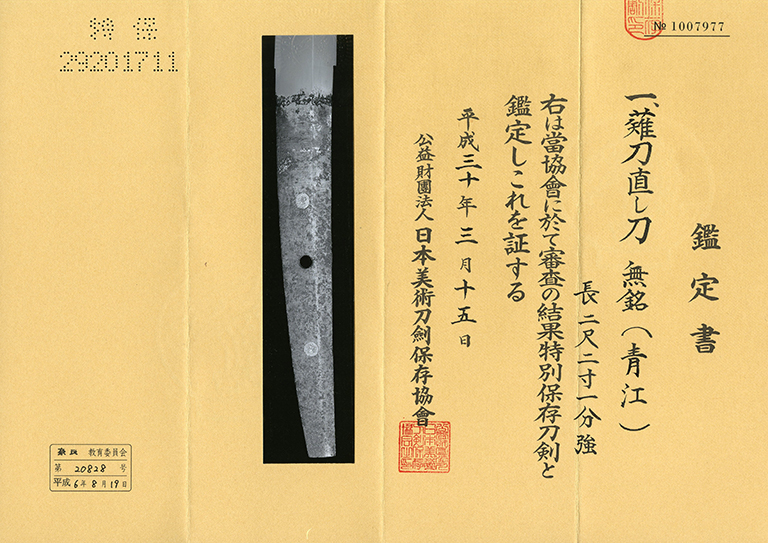 鑑定書
一、薙刀直し刀 無銘(青江)
長二尺二寸一分強
右は當協會に於て審査の結果特別保存刀剣と
鑑定しこれを証する
平成三十年三月十五日
公益財團法人日本美術刀劍保存協會
№ 1007977
特保
29201711
奈良 教育委員会
第 20828 号
平成 6年 8月 19日